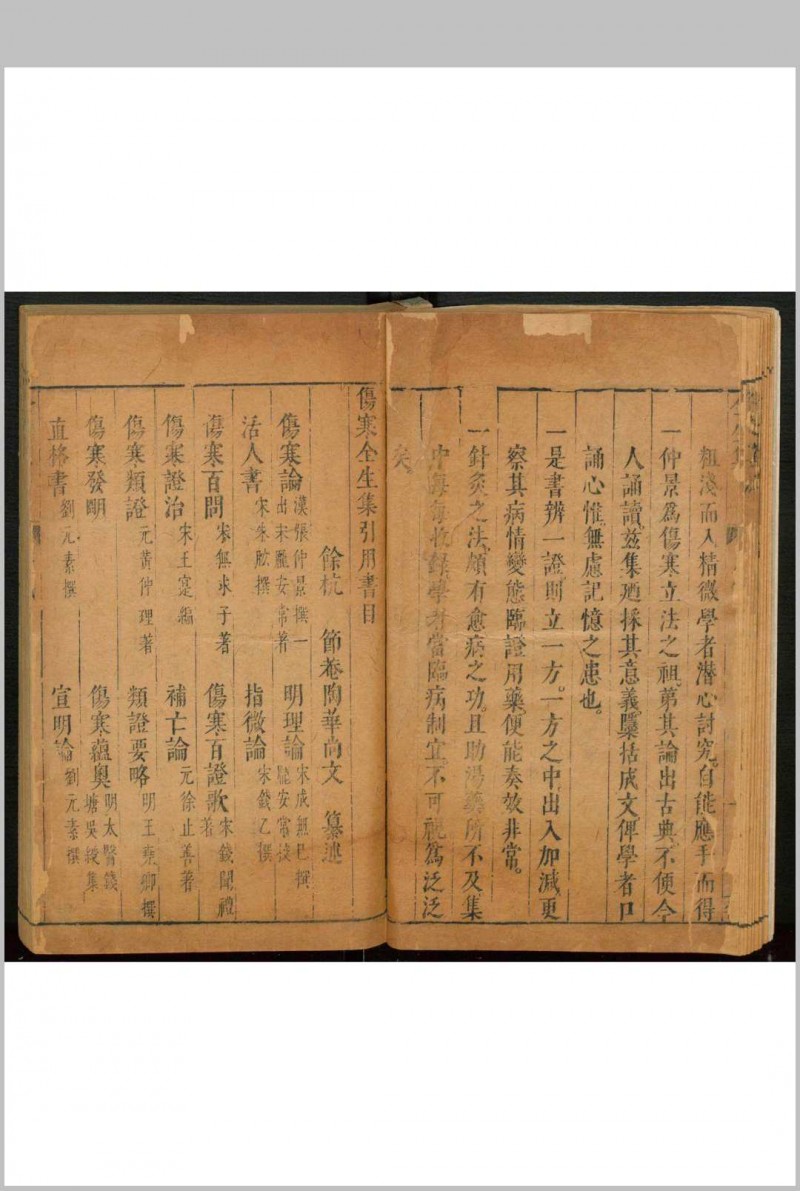 粗淺而入精微學者潛心討究。自能應手而得
一仲景爲傷寒立法之祖。第其論出古典。不便今
人誦讀。兹集廼採其意義。隱括成文俾學者口
誦心惟。無慮記憶之患也。
一是書辨一證。則立一方。一方之中。出入加減。更
察其病情變態。臨證用藥。便能奏效非常。
一針灸之法。頗有愈病之功。且助湯藥所不及集
中每每收錄。學者當臨病制宜。不可視爲泛泛
矣
傷寒全生集引用書目
餘杭 節菴陶華尚文 纂述
傷寒論 漢張仲景撰一出宋龐安常著 明理論 宋成無巳撰龐安常授
活人書 宋朱肱撰 指微論 宋錢乙撰
傷寒百問 宋無求子著 傷寒百證歌 宋錢聞禮著
傷寒證治 宋王寔編 補亡論 元徐止善著
傷寒類證 元黃仲理著 類證要略 明王堯卿撰
傷寒發明 傷寒蘊奥 明太醫錢塘吳綬集
直格書 劉元素撰 宣明論 劉元素撰